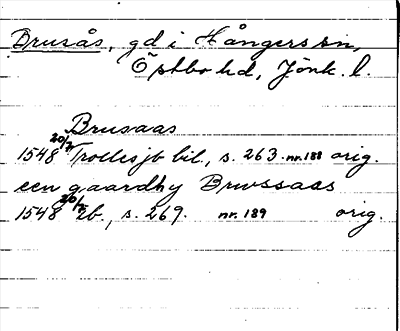 Brusås, gd i Hångers sn,
Östbo hd, Jönk. l.
Brusaas
1548 20/7 Trollesjb bil., s. 263. nr. 188 orig.
een gaardhy Brwssaas
1548 20/7 ib., s. 269. nr. 189 orig.